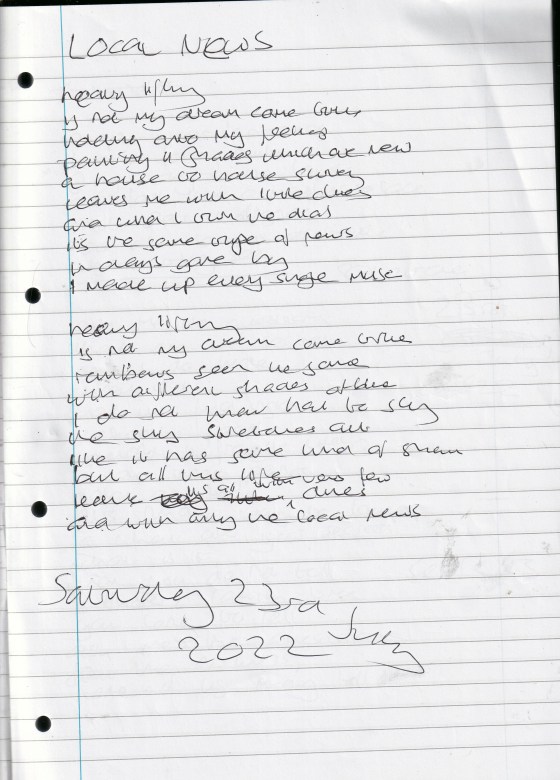 LOCAL NEWS
heavy lifting
is not my dream come true
holding onto my feelings
painting in shades which are new
a house to house survey
leaves me with little clues
and when I turn the dial
its the same type of news
in days gone by
I made up every single muse
heavy lifting
is not my dream come true
rainbows seem the same
with different shades of blue
I do not know how to say
the sky stretches out
like it has some kind of
but all this life
leave us all with very few clues
and with only the local news
Saturday 23rd
July
2022